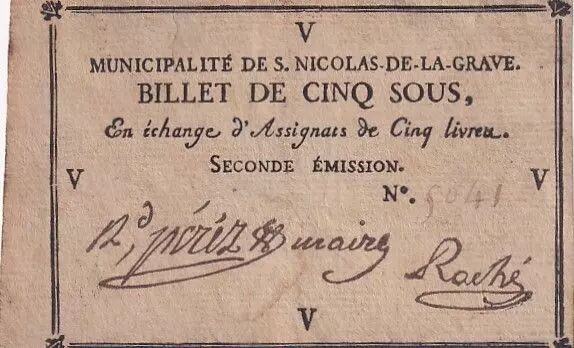 V
MUNICIPALITÉ DE S. NICOLAS-DE-LA-GRAVE.
BILLET DE CINQ SOUS,
En échange d'Assignats de Cinq livres.
SECONDE ÉMISSION.
V V
N°. 5041
pérèz maire
Raché
V